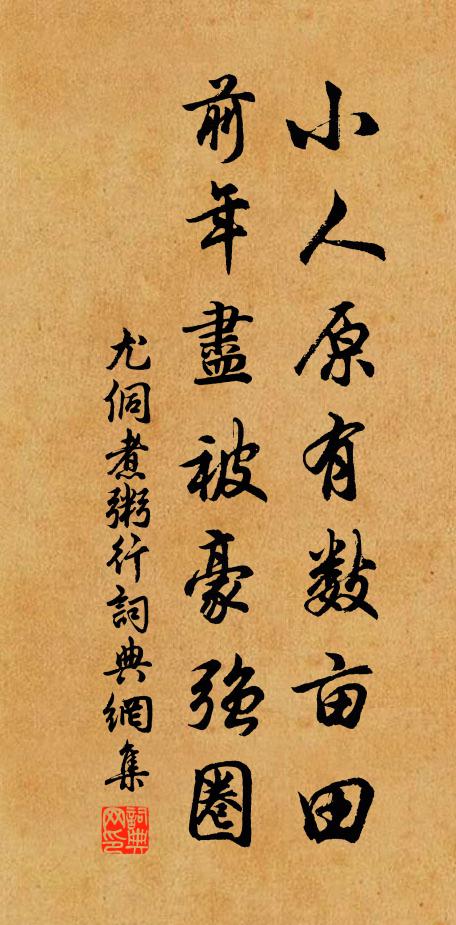 小人原有数亩田
前年盡被豪强圈
尤侗煮粥行詞典網集
詞典网印